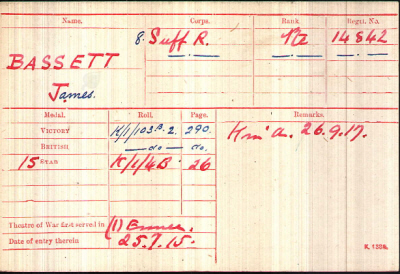 Name. Corps. Rank Regtl. No.
BASSETT 8. Suff R. Pte 14842
James.
Medal. Roll. Page. Remarks.
VICTORY K/1/103.B.2. 290. 26.9.17.
BRITISH —do— do.
15 STAR K/1/4B 26
Theatre of War first served in (1) France.
Date of entry therein 25.7.15.